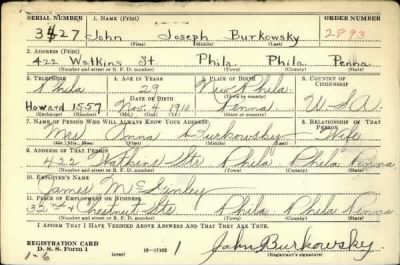 SERIAL NUMBER 1. NAME (Print) ORDER NUMBER
3427 John Joseph Burkowsky 2893
(First) (Middle) (Last)
2. ADDRESS (Print)
422 Watkins St. Phila Phila Penna
(Number and street or R. F. D. number) (Town) (County) (State)
3. TELEPHONE 4. AGE IN YEARS 5. PLACE OF BIRTH 6. COUNTRY OF CITIZENSHIP
Phila 29 New Phila
DATE OF BIRTH
Howard 1557 Nov. 4 1910 Penna U.S.A
(Exchange) (Number) (Mo.) (Day) (Yr.) (State or country)
7. NAME OF PERSON WHO WILL ALWAYS KNOW YOUR ADDRESS 8. RELATIONSHIP OF THAT PERSON
Mrs Anna Burkowsky Wife
(Mr., Mrs., Miss) (First) (Middle) (Last)
9. ADDRESS OF THAT PERSON
422 Watkins Sts Phila Phila Penna
(Number and street or R. F. D. number) (Town) (County) (State)
10. EMPLOYER'S NAME
James McGinley
11. PLACE OF EMPLOYMENT OR BUSINESS
32nd & Chestnut Sts Phila Phila Penna
(Number and street or R. F. D. number) (Town) (County) (State)
I AFFIRM THAT I HAVE VERIFIED ABOVE ANSWERS AND THAT THEY ARE TRUE.
REGISTRATION CARD
D. S. S. Form 1 16-17105 (over) John Burkowsky
1-6 1 (Registrant's signature)